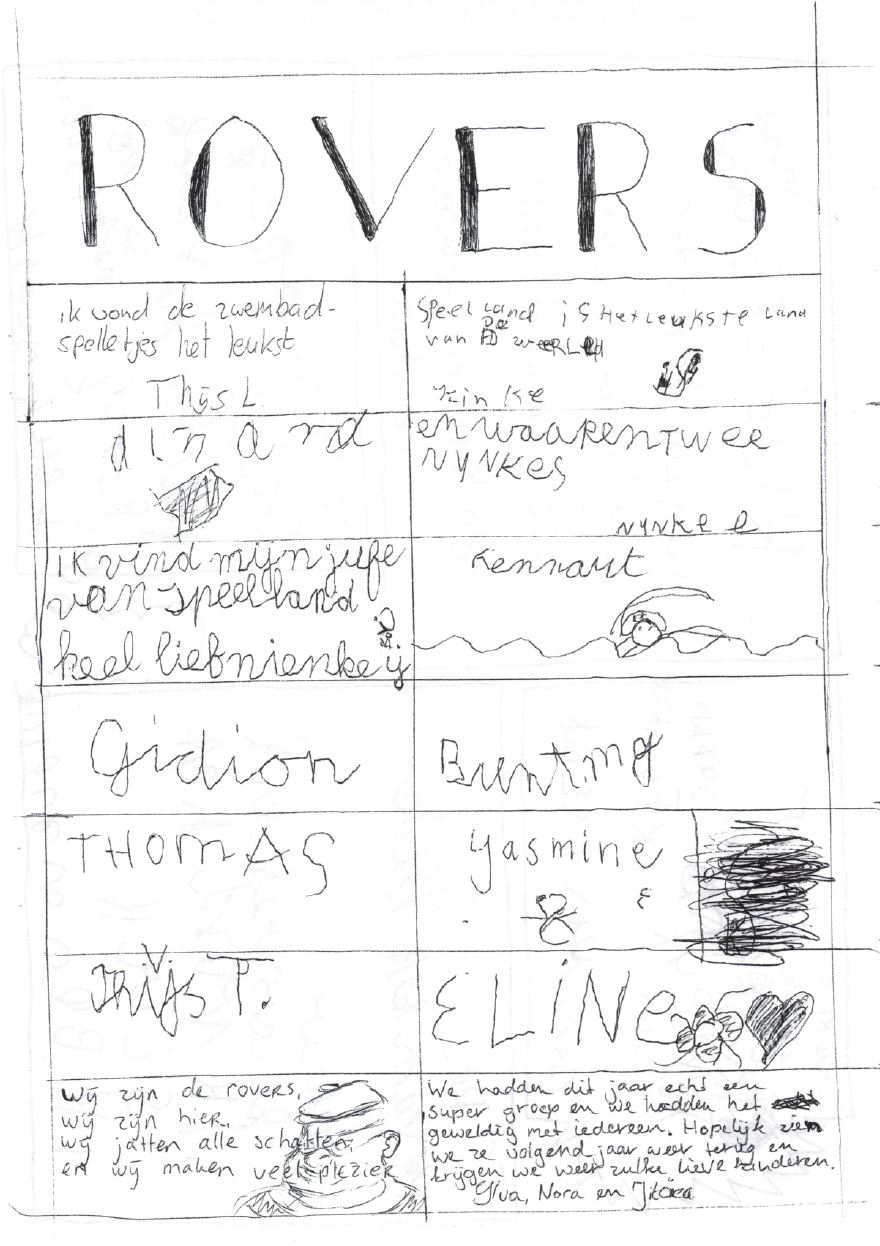 ROVERS
ik vond de zwembad-
spelletjes het leukst
Thijs L
Speel land is Het leukste land
van De weerLd
Rinke
dinard
en waaren Twee
NYNKes
NYNKe e
ik vind mijn jufe
van speelland
heel lief nienke ij
Rennart
Gidion
Bunting
THOmAS
yasmine
Thijs T.
ELiNe
Wij zijn de rovers,
wij zijn hier,
wij jatten alle schatten,
en wij maken veel plezier
We hadden dit jaar echt een
super groep en we hadden het
geweldig met iedereen. Hopelijk zien
we ze volgend jaar weer terug en
krijgen we weer zulke lieve kinderen.
Ylva, Nora en